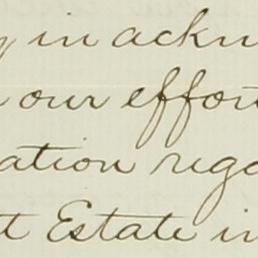 y in ackn
our effor
ation rega
t Estate in